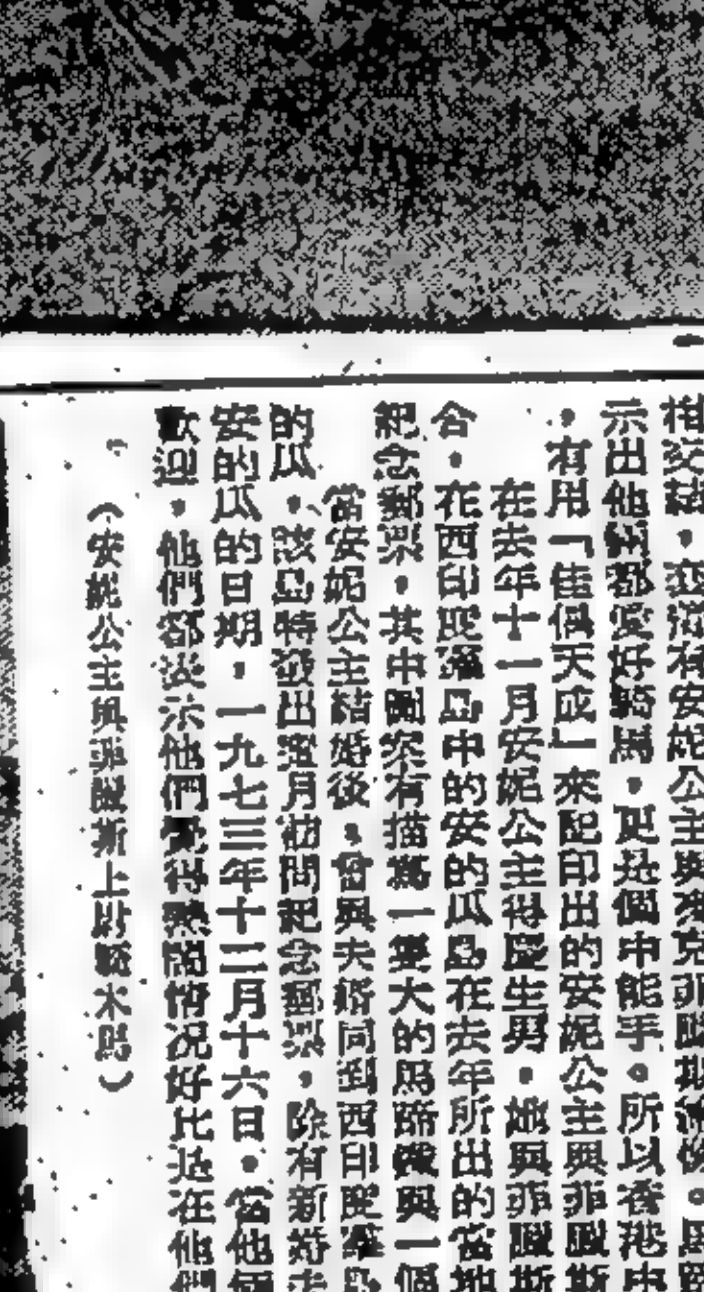 相交結，並從有安妮公主與
示出他倆都愛好騎馬，更是個中能手。所以香港中
，有用「佳偶天成」來配印出的安妮公主與菲臘斯
在去年十一月安妮公主得慶生男，她與菲臘斯
合，在西印度羣島中的安的瓜島在去年所出的當地
紀念郵票，其中圖案有描寫一隻大的馬蹄鐵與一個
當安妮公主結婚後，曾與夫婿同到西印度羣島
的瓜，該島特發出蜜月訪問紀念郵票，除有新婚夫
安的瓜的日期，一九七三年十二月十六日。當他倆
歡迎，他們都表示他們覺得熱鬧情況好比是在他們
（安妮公主與菲臘斯上尉騎木馬）